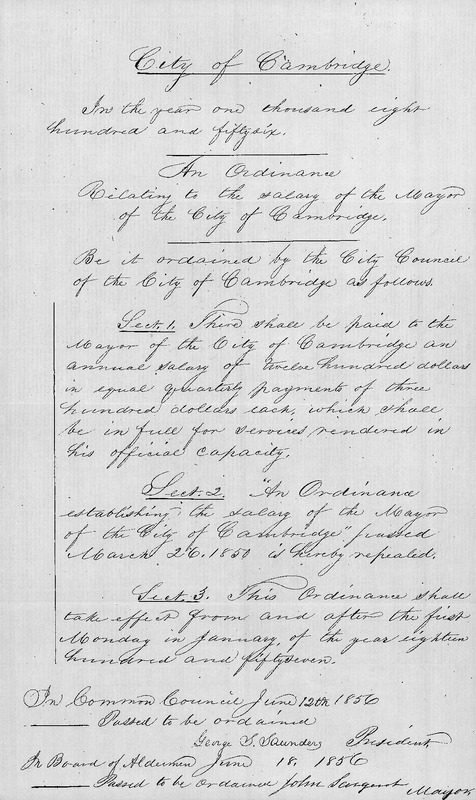 City of Cambridge.
In the year one thousand eight
hundred and fiftysix.
An Ordinance
Relating to the salary of the Mayor
of the City of Cambridge.
Be it ordained by the City Council
of the City of Cambridge as follows.
Sect. 1. There shall be paid to the
Mayor of the City of Cambridge an
annual salary of twelve hundred dollars
in equal quarterly payments of three
hundred dollars each, which shall
be in full for services rendered in
his official capacity.
Sect. 2. "An Ordinance
establishing the salary of the Mayor
of the City of Cambridge" passed
March 26. 1850 is hereby repealed.
Sect. 3. This Ordinance shall
take effect from and after the first
Monday in January, of the year eighteen
hundred and fiftyseven.
In Common Council June 12th 1856
Passed to be ordained
George S. Saunders President
In Board of Aldermen June 18, 1856
Passed to be ordained John Sargent Mayor